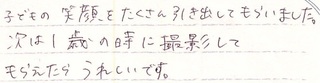 子どもの笑顔をたくさん引き出してもらいました。
次は1歳の時に撮影して
もらえたらうれしいです。